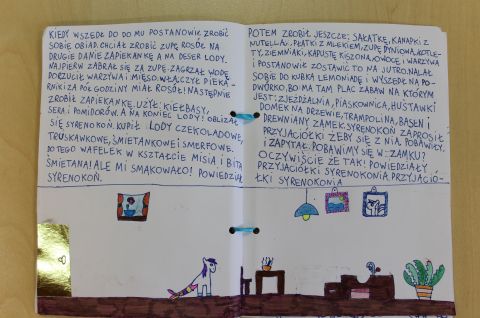 KIEDY WSZEDŁ DO DO MU POSTANOWIŁ ZROBIĆ
SOBIE OBIAD. CHCIAŁ ZROBIĆ ZUPĘ ROSÓŁ NA
DRUGIE DANIE ZAPIEKANKĘ A NA DESER LODY.
NAJPIERW ZABRAŁ SIĘ ZA ZUPĘ ZAGRZAŁ WODĘ
DORZUCIŁ WARZYWA I MIĘSO. WŁĄCZYŁ PIEKA-
RNIK I ZA PÓŁ GODZINY MIAŁ ROSÓŁ! NASTĘPNIE
ZROBIŁ ZAPIEKANKĘ. UŻYŁ: KIEŁBASY,
SERA I POMIDORÓW. A NA KONIEC LODY! OBLIZAŁ
SIĘ SYRENOKOŃ. KUPIŁ: LODY CZEKOLADOWE,
TRUSKAWKOWE, ŚMIETANKOWE I SMERFOWE.
DO TEGO WAFELEK W KSZTAŁCIE MISIA I BITA
ŚMIETANA! ALE MI SMAKOWAŁO! POWIEDZIAŁ
SYRENOKOŃ.
POTEM ZROBIŁ JESZCZE: SAŁATKĘ, KANAPKI Z
NUTELLĄ, PŁATKI Z MLEKIEM, ZUPĘ DYNIOWĄ, KOTLE-
TY, ZIEMNIAKI, KAPUSTĘ KISZONĄ, OWOCE I WARZYWA
I POSTANOWIŁ ZOSTAWIĆ TO NA JUTRO. NALAŁ
SOBIE DO KUBKA LEMONIADĘ I WYSZEDŁ NA PO-
DWÓRKO, BO MA TAM PLAC ZABAW NA KTÓRYM
JEST: ZJEŻDŻALNIA, PIASKOWNICA, HUSTAWKI
DOMEK NA DRZEWIE, TRAMPOLINA, BASEN I
DREWNIANY ZAMEK. SYRENOKOŃ ZAPROSIŁ
PRZYJACIÓŁKI ŻEBY SIĘ Z NIĄ POBAWIŁY.
I ZAPYTAŁ. POBAWIMY SIĘ W ZAMKU?
OCZYWIŚCIE ŻE TAK! POWIEDZIAŁY
PRZYJACIÓŁKI SYRENOKONIA. PRZYJACIÓ-
ŁKI SYRENOKONIA